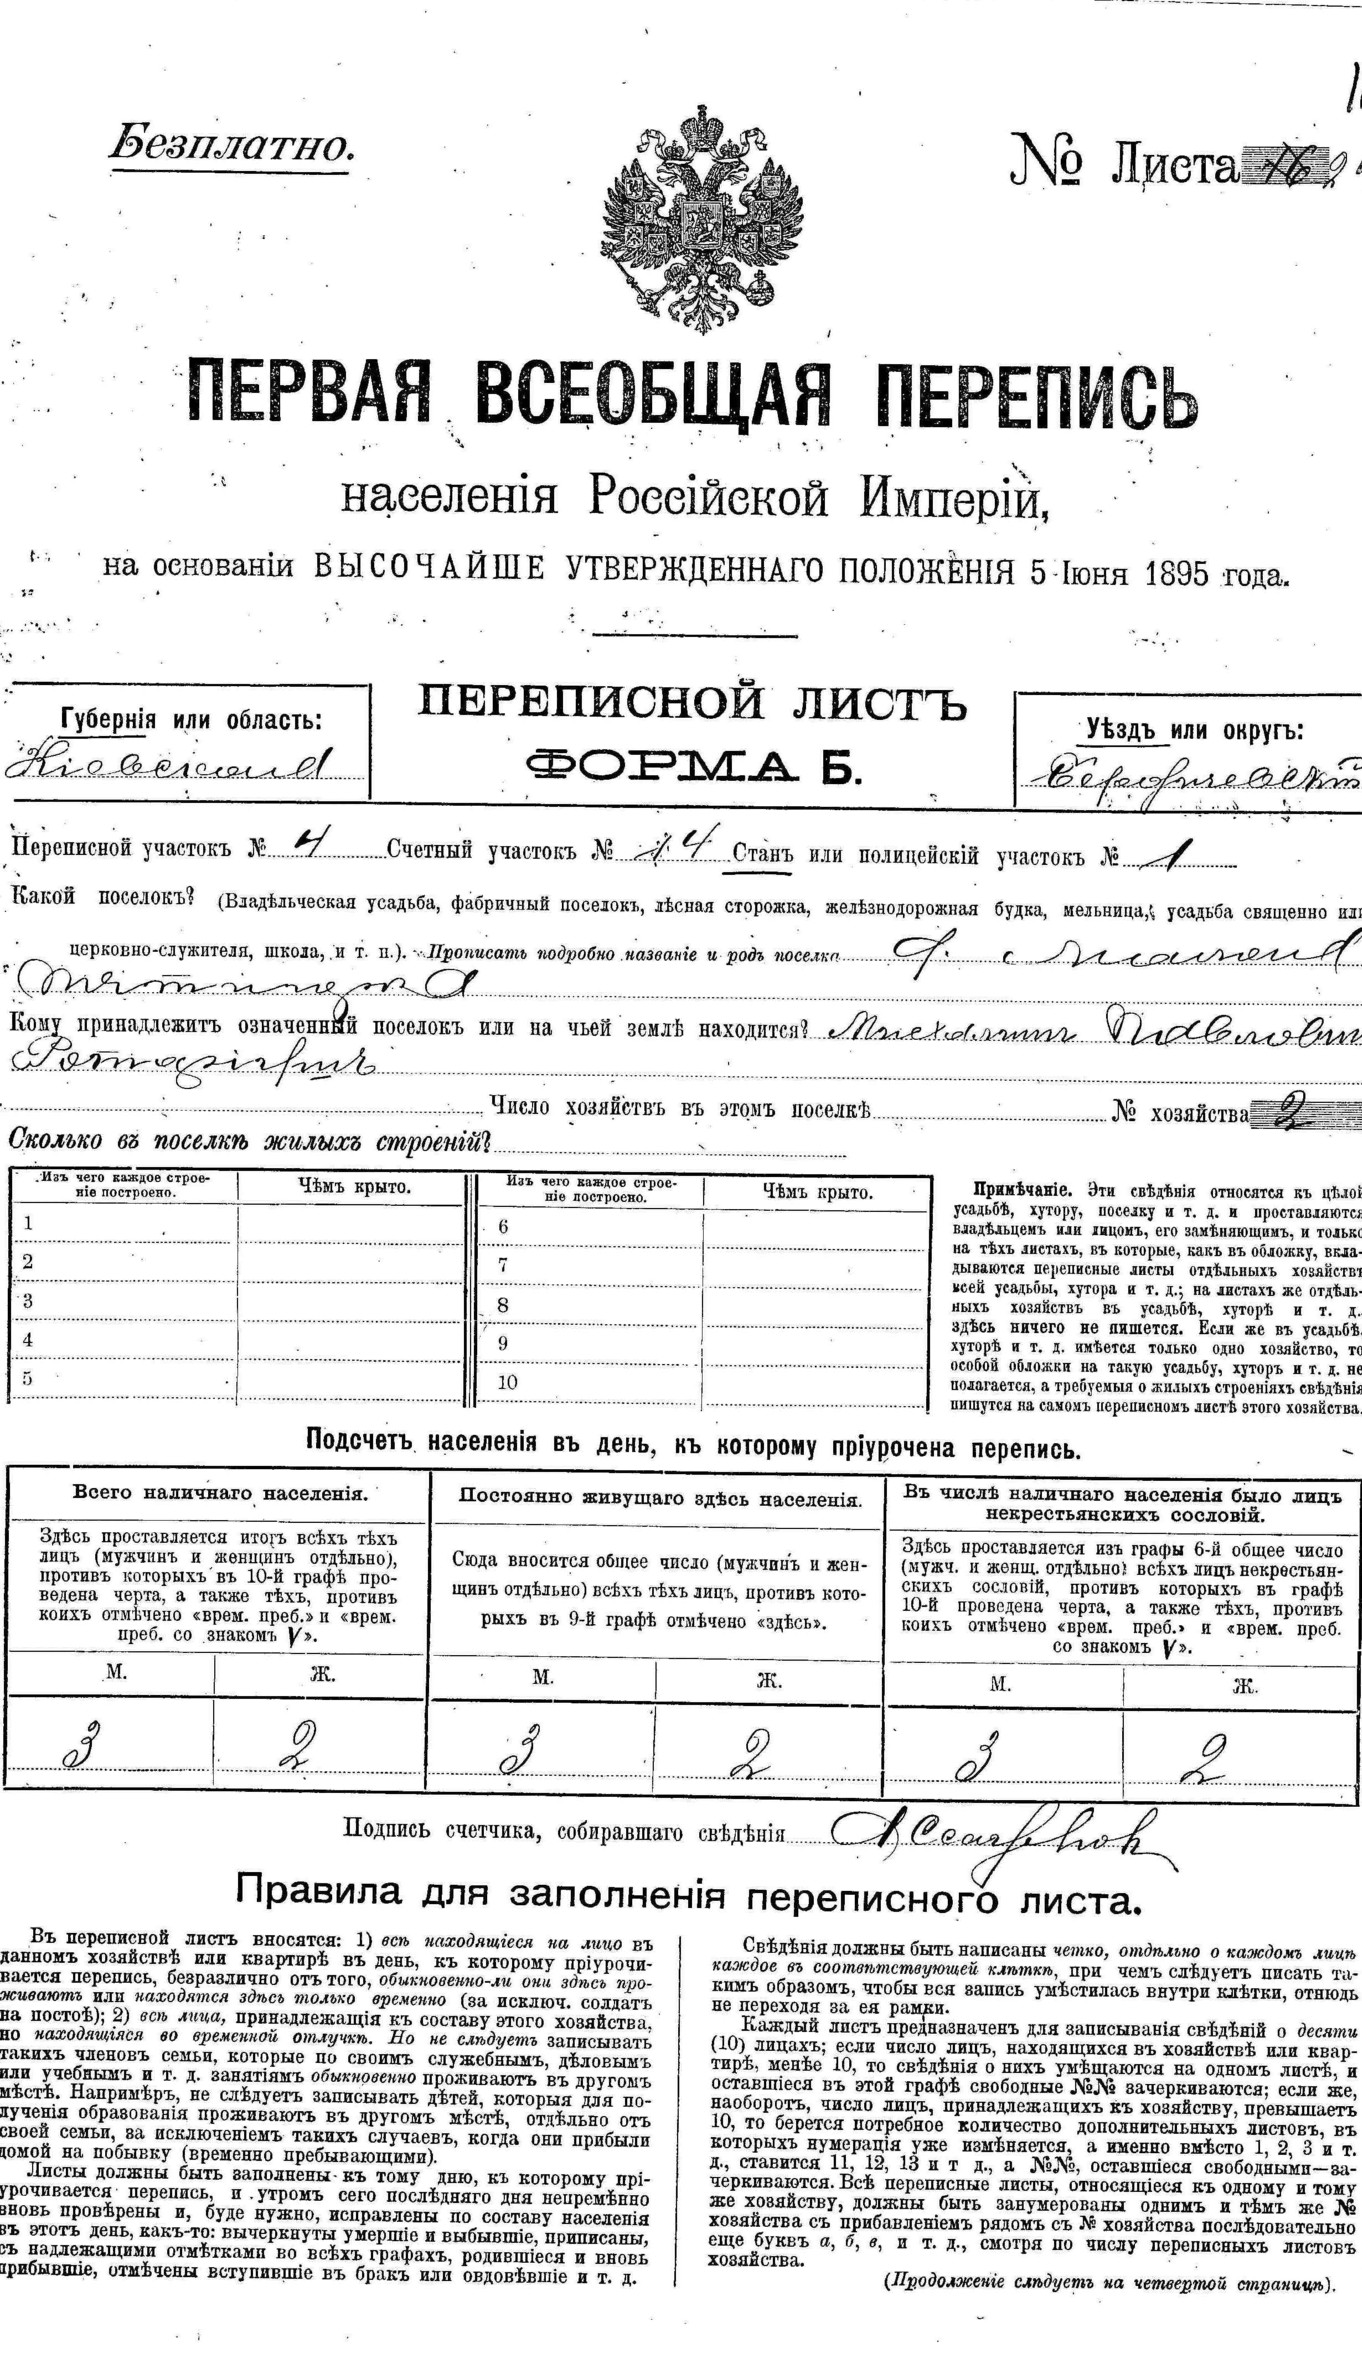 Безплатно.
№ Листа
ПЕРВАЯ ВСЕОБЩАЯ ПЕРЕПИСЬ
населенія Россійской Имперіи,
на основаніи ВЫСОЧАЙШЕ УТВЕРЖДЕННАГО ПОЛОЖЕНІЯ 5 Іюня 1895 года.
ПЕРЕПИСНОЙ ЛИСТЪ
ФОРМА Б.
Губернія или область:
Кіевская
Уѣздъ или округъ:
Бердичевскій
Переписной участокъ № 4 Счетный участокъ № 14 Станъ или полицейскій участокъ № 1
Какой поселокъ? (Владѣльческая усадьба, фабричный поселокъ, лѣсная сторожка, желѣзнодорожная будка, мельница, усадьба священно или
церковно-служителя, школа, и т. п.). Прописать подробно названіе и родъ поселка
Кому принадлежитъ означенный поселокъ или на чьей землѣ находится?
Число хозяйствъ въ этомъ поселкѣ № хозяйства 2
Сколько въ поселкѣ жилыхъ строеній?
Изъ чего каждое строе-
ніе построено.
Чѣмъ крыто.
Изъ чего каждое строе-
ніе построено.
Чѣмъ крыто.
1 6
2 7
3 8
4 9
5 10
Примѣчаніе. Эти свѣдѣнія относятся къ цѣлой
усадьбѣ, хутору, поселку и т. д. и проставляются
владѣльцемъ или лицомъ, его замѣняющимъ, и только
на тѣхъ листахъ, въ которые, какъ въ обложку, вкла-
дываются переписные листы отдѣльныхъ хозяйствъ
всей усадьбы, хутора и т. д.; на листахъ же отдѣль-
ныхъ хозяйствъ въ усадьбѣ, хуторѣ и т. д.
здѣсь ничего не пишется. Если же въ усадьбѣ,
хуторѣ и т. д. имѣется только одно хозяйство, то
особой обложки на такую усадьбу, хуторъ и т. д. не
полагается, а требуемыя о жилыхъ строеніяхъ свѣдѣнія
пишутся на самомъ переписномъ листѣ этого хозяйства.
Подсчетъ населенія въ день, къ которому пріурочена перепись.
Всего наличнаго населенія.
Здѣсь проставляется итогъ всѣхъ тѣхъ
лицъ (мужчинъ и женщинъ отдѣльно),
противъ которыхъ въ 10-й графѣ про-
ведена черта, а также тѣхъ, противъ
коихъ отмѣчено «врем. преб.» и «врем.
преб. со знакомъ V».
Постоянно живущаго здѣсь населенія.
Сюда вносится общее число (мужчинъ и жен-
щинъ отдѣльно) всѣхъ тѣхъ лицъ, противъ кото-
рыхъ въ 9-й графѣ отмѣчено «здѣсь».
Въ числѣ наличнаго населенія было лицъ
некрестьянскихъ сословій.
Здѣсь проставляется изъ графы 6-й общее число
(мужч. и женщ. отдѣльно) всѣхъ лицъ некрестьян-
скихъ сословій, противъ которыхъ въ графѣ
10-й проведена черта, а также тѣхъ, противъ
коихъ отмѣчено «врем. преб.» и «врем. преб.
со знакомъ V».
М. Ж. М. Ж. М. Ж.
3 2 3 2 3 2
Подпись счетчика, собиравшаго свѣдѣнія
Правила для заполненія переписного листа.
Въ переписной листъ вносятся: 1) всѣ находящіеся на лицо въ
данномъ хозяйствѣ или квартирѣ въ день, къ которому пріурочи-
вается перепись, безразлично отъ того, обыкновенно-ли они здѣсь про-
живаютъ или находятся здѣсь только временно (за исключ. солдатъ
на постоѣ); 2) всѣ лица, принадлежащія къ составу этого хозяйства,
но находящіяся во временной отлучкѣ. Но не слѣдуетъ записывать
такихъ членовъ семьи, которые по своимъ служебнымъ, дѣловымъ
или учебнымъ и т. д. занятіямъ обыкновенно проживаютъ въ другомъ
мѣстѣ. Напримѣръ, не слѣдуетъ записывать дѣтей, которыя для по-
лученія образованія проживаютъ въ другомъ мѣстѣ, отдѣльно отъ
своей семьи, за исключеніемъ такихъ случаевъ, когда они прибыли
домой на побывку (временно пребывающими).
Листы должны быть заполнены къ тому дню, къ которому прі-
урочивается перепись, и утромъ сего послѣдняго дня непремѣнно
вновь провѣрены и, буде нужно, исправлены по составу населенія
въ этотъ день, какъ-то: вычеркнуты умершіе и выбывшіе, приписаны,
съ надлежащими отмѣтками во всѣхъ графахъ, родившіеся и вновь
прибывшіе, отмѣчены вступившіе въ бракъ или овдовѣвшіе и т. д.
Свѣдѣнія должны быть написаны четко, отдѣльно о каждомъ лицѣ
каждое въ соотвѣтствующей клѣткѣ, при чемъ слѣдуетъ писать та-
кимъ образомъ, чтобы вся запись умѣстилась внутри клѣтки, отнюдь
не переходя за ея рамки.
Каждый листъ предназначенъ для записыванія свѣдѣній о десяти
(10) лицахъ; если число лицъ, находящихся въ хозяйствѣ или квар-
тирѣ, менѣе 10, то свѣдѣнія о нихъ умѣщаются на одномъ листѣ, и
оставшіеся въ этой графѣ свободные №№ зачеркиваются; если же,
наоборотъ, число лицъ, принадлежащихъ къ хозяйству, превышаетъ
10, то берется потребное количество дополнительныхъ листовъ, въ
которыхъ нумерація уже измѣняется, а именно вмѣсто 1, 2, 3 и т.
д., ставится 11, 12, 13 и т д., а №№, оставшіеся свободными—за-
черкиваются. Всѣ переписные листы, относящіеся къ одному и тому
же хозяйству, должны быть занумерованы однимъ и тѣмъ же №
хозяйства съ прибавленіемъ рядомъ съ № хозяйства послѣдовательно
еще буквъ а, б, в, и т. д., смотря по числу переписныхъ листовъ
хозяйства.
(Продолженіе слѣдуетъ на четвертой страницѣ).